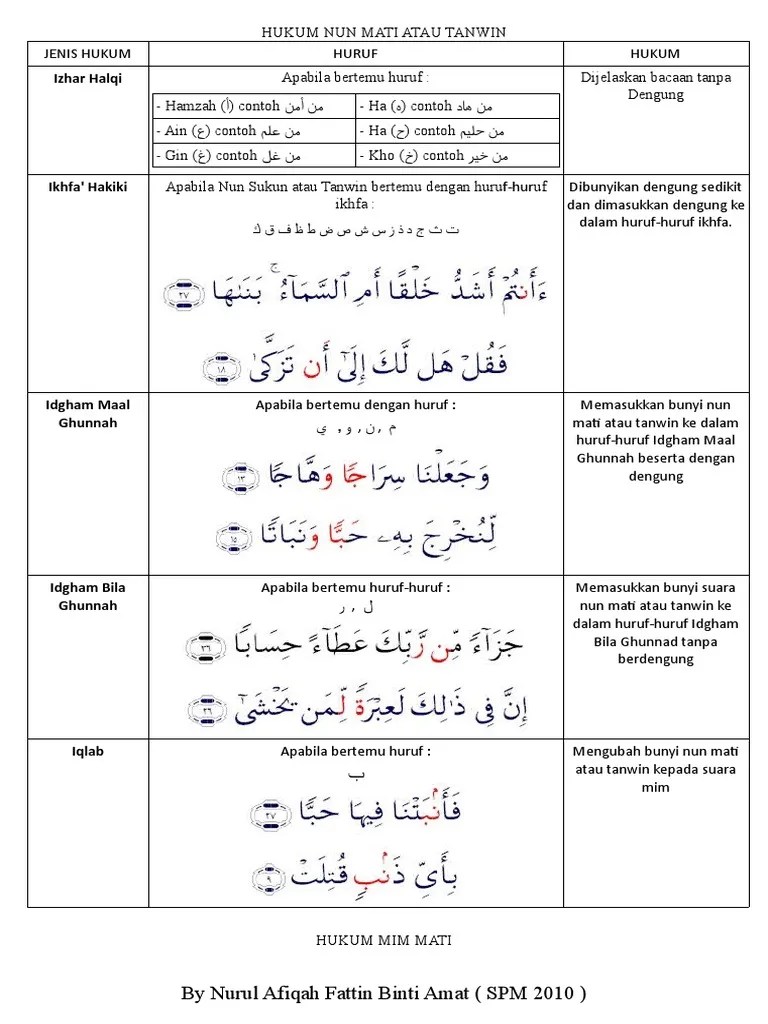 HUKUM NUN MATI ATAU TANWIN
JENIS HUKUM HURUF HUKUM
Izhar Halqi
Apabila bertemu huruf :
- Hamzah (أ) contoh من أمن
- Ha (ه) contoh من هاد
- Ain (ع) contoh من علم
- Ha (ح) contoh من حليم
- Gin (غ) contoh من غل
- Kho (خ) contoh من خير
Dijelaskan bacaan tanpa
Dengung
Ikhfa' Hakiki
Apabila Nun Sukun atau Tanwin bertemu dengan huruf-huruf
ikhfa :
ت ث ج د ذ ز س ش ص ض ط ظ ف ق ك
ءَأَنتُمْ أَشَدُّ خَلْقًا أَمِ ٱلسَّمَآءُ ۚ بَنَىٰهَا ٢٧
فَقُلْ هَل لَّكَ إِلَىٰٓ أَن تَزَكَّىٰ ١٨
Dibunyikan dengung sedikit
dan dimasukkan dengung ke
dalam huruf-huruf ikhfa.
Idgham Maal
Ghunnah
Apabila bertemu dengan huruf :
م ,ن , و , ي
وَجَعَلْنَا سِرَاجًا وَهَّاجًا ١٣
لِّنُخْرِجَ بِهِۦ حَبًّا وَنَبَاتًا ١٥
Memasukkan bunyi nun
mati atau tanwin ke dalam
huruf-huruf Idgham Maal
Ghunnah beserta dengan
dengung
Idgham Bila
Ghunnah
Apabila bertemu huruf-huruf :
ل , ر
جَزَآءً مِّن رَّبِّكَ عَطَآءً حِسَابًا ٣٦
إِنَّ فِى ذَٰلِكَ لَعِبْرَةً لِّمَن يَخْشَىٰٓ ٢٦
Memasukkan bunyi suara
nun mati atau tanwin ke
dalam huruf-huruf Idgham
Bila Ghunnad tanpa
berdengung
Iqlab
Apabila bertemu huruf :
ب
فَأَنۢبَتْنَا فِيهَا حَبًّا ٢٧
بِأَىِّ ذَنۢبٍ قُتِلَتْ ٩
Mengubah bunyi nun mati
atau tanwin kepada suara
mim
HUKUM MIM MATI
By Nurul Afiqah Fattin Binti Amat ( SPM 2010 )